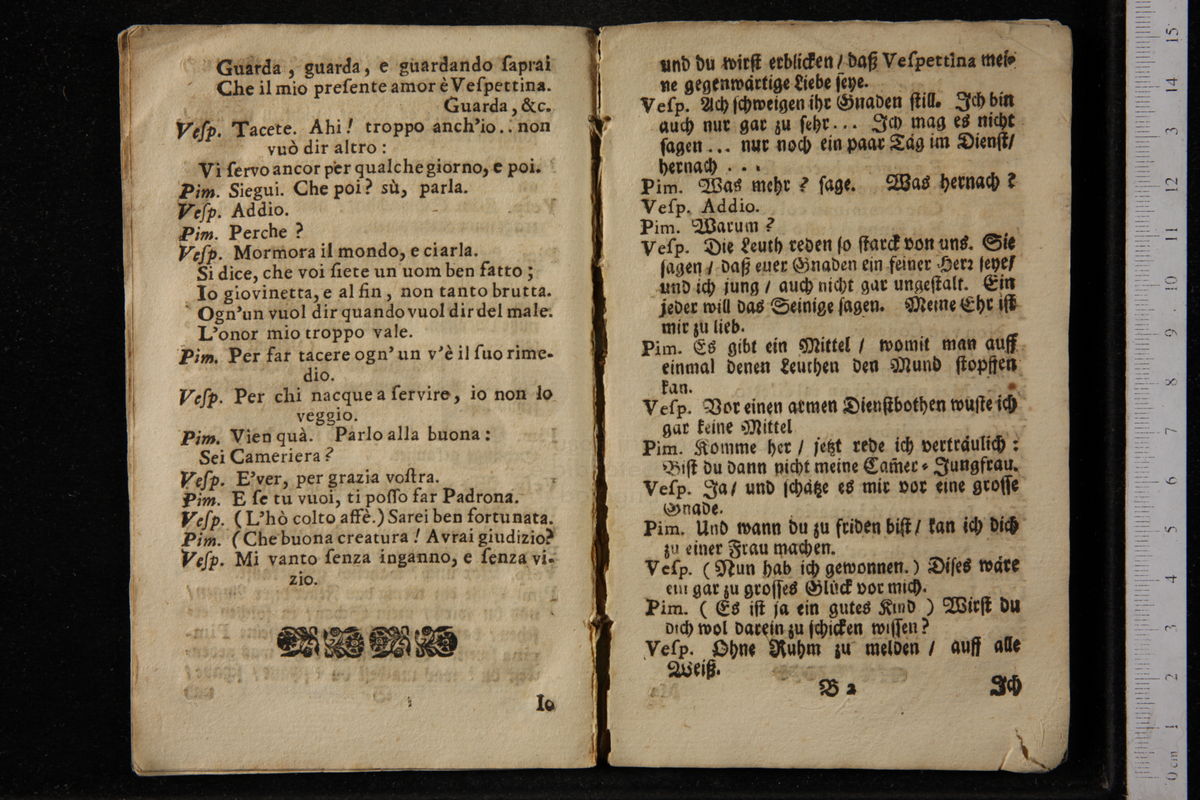 Guarda , guarda, e guardando ſaprai
Che il mio preſente amor è Veſpettina.
Guarda, &c.
Veſp. Tacete. Ahi! troppo anch'io . . non
vuò dir altro :
Vi ſervo ancor per qualche giorno, e poi.
Pim. Siegui. Che poi? sù, parla.
Veſp. Addio.
Pim. Perche ?
Veſp. Mormora il mondo, e ciarla.
Si dice, che voi ſiete un uom ben fatto ;
Io giovinetta, e al fin , non tanto brutta.
Ogn'un vuol dir quando vuol dir del male.
L'onor mio troppo vale.
Pim. Per far tacere ogn' un v'è il ſuo rime-
dio.
Veſp. Per chi nacque a ſervire, io non lo
veggio.
Pim. Vien quà. Parlo alla buona :
Sei Cameriera?
Veſp. E'ver, per grazia voſtra.
Pim. E ſe tu vuoi, ti poſſo far Padrona.
Veſp. (L'hò colto affè.) Sarei ben fortunata.
Pim. (Che buona creatura ! Avrai giudizio?
Veſp. Mi vanto ſenza inganno, e ſenza vi-
zio.
Io
und du wirſt erblicken / daß Veſpettina mei-
ne gegenwärtige Liebe ſeye.
Veſp. Ach ſchweigen ihr Gnaden ſtill. Ich bin
auch nur gar zu ſehr... Ich mag es nicht
ſagen ... nur noch ein paar Täg im Dienſt/
hernach . . .
Pim. Was mehr ? ſage. Was hernach ?
Veſp. Addio.
Pim. Warum ?
Veſp. Die Leuth reden ſo ſtarck von uns. Sie
ſagen / daß euer Gnaden ein feiner Herr ſeye/
und ich jung / auch nicht gar ungeſtalt. Ein
jeder will das Seinige ſagen. Meine Ehr iſt
mir zu lieb.
Pim. Es gibt ein Mittel / womit man auff
einmal denen Leuthen den Mund ſtopffen
kan.
Veſp. Vor einen armen Dienſtbothen wuſte ich
gar keine Mittel
Pim. Komme her / jetzt rede ich verträulich :
Biſt du dann nicht meine Cam̃er-Jungfrau.
Veſp. Ja/ und ſchätze es mir vor eine groſſe
Gnade.
Pim. Und wann du zu friden biſt / kan ich dich
zu einer Frau machen.
Veſp. (Nun hab ich gewonnen.) Diſes wäre
ein gar zu groſſes Glück vor mich.
Pim. ( Es iſt ja ein gutes Kind ) Wirſt du
dich wol darein zu ſchicken wiſſen?
Veſp. Ohne Ruhm zu melden / auff alle
Weiß.
B 2 Ich
15
14
3
12
11
10
9
8
7
6
5
4
3
2
1
0 cm